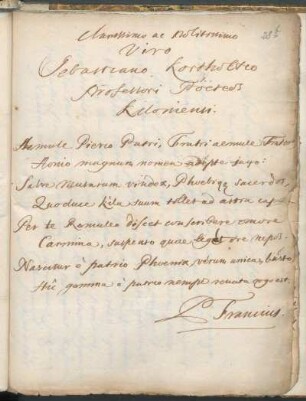 Clarissimo ac Politissimo
Viro
Sebastiano Kortholto
Professori
Kiloniensi.
Aemule Pierea Patri, Fratri aemule Frater
Aonio magnum nomen adepte jugo:
Salve Musarum vindex, Phoebiq; sacerdos,
Quo duce Kila suum tollet ad astra caput.
Per te Romulea discet conscribere
Carmina, suspenso quae legat ore nepos.
Nascitur è patrio Phoenix, verum unica, busto:
gemma è patrio nempe renata rogo est.
P Francius.